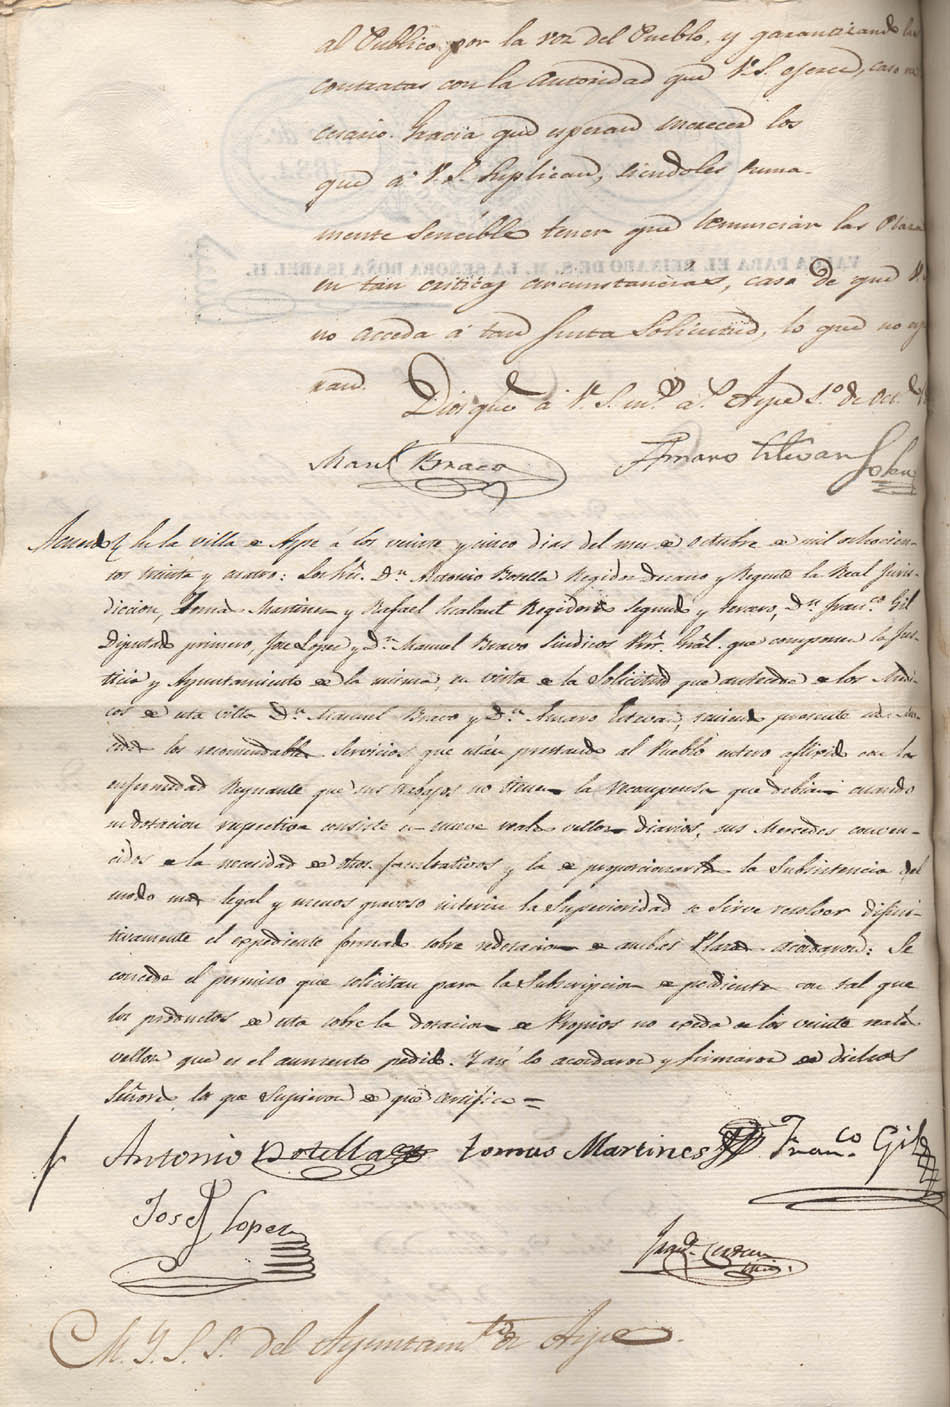 al Publico por la voz del Pueblo, y garantizando las
contratas con la Autoridad que V.S. ejerce, caso ne-
cesario. Gracia que esperan merecer los
que á V.S. Suplican, siendoles suma-
mente Sencible tener que renunciar las Plazas
en tan criticas circunstancias, caso de que V.S.
no acceda á tan justa Solicitud, lo que no espe-
ran.
Dios gue á V.S. m.s a.s Aspe 1.º de Oct.e
Man.l Bravo
Amaro Estevan
VALGA PARA EL REINADO DE S. M. LA SEÑORA DOÑA ISABEL II.
En la villa de Aspe á los veinte y cinco dias del mes de Octubre de mil ochocien-
tos treinta y cuatro: Los Sres. D.n Antonio Botella Regidor Decano y Regente la Real Juris-
diccion, Tomas Martinez y Rafael Regidores Segundo y tercero, D.n Fran.co Gil
Diputado primero, Jose Lopez y D.n Manuel Bravo Sindicos Pror. Gral. que componen la Jus-
ticia y Ayuntamiento de la misma, en vista de la Solicitud que antecede de los Medi-
cos de esta villa D.n Manuel Bravo y D.n Amaro Estevan, teniendo presente
los recomendables Servicios que estan prestando al Pueblo entero afligido con la
enfermedad Reynante que sus trabajos no tienen la recompensa que debian cuando
su dotacion respectiva consiste en nueve reales vellon diarios, sus Mercedes conven-
cidos de la necesidad de otros facultativos y la de proporcionarles la Subsistencia del
modo mas legal y menos gravoso interin la Superioridad se sirve resolver difini-
tivamente el expediente formado sobre redotacion de ambas Plazas acordaron: Se
concede el permiso que solicitan para la Subscripcion de pudientes con tal que
los productos de esta sobre la dotacion de Propios no exeda de los veinte reales
vellon que es el aumento pedido. Y así lo acordaron y firmaron de dichos
Señores los que Supieron de que certifico =
Antonio Botella
tomas Martines
Fran.co Gil
Josef Lopez
M. Y. S. S. del Ayuntam.to de Aspe.